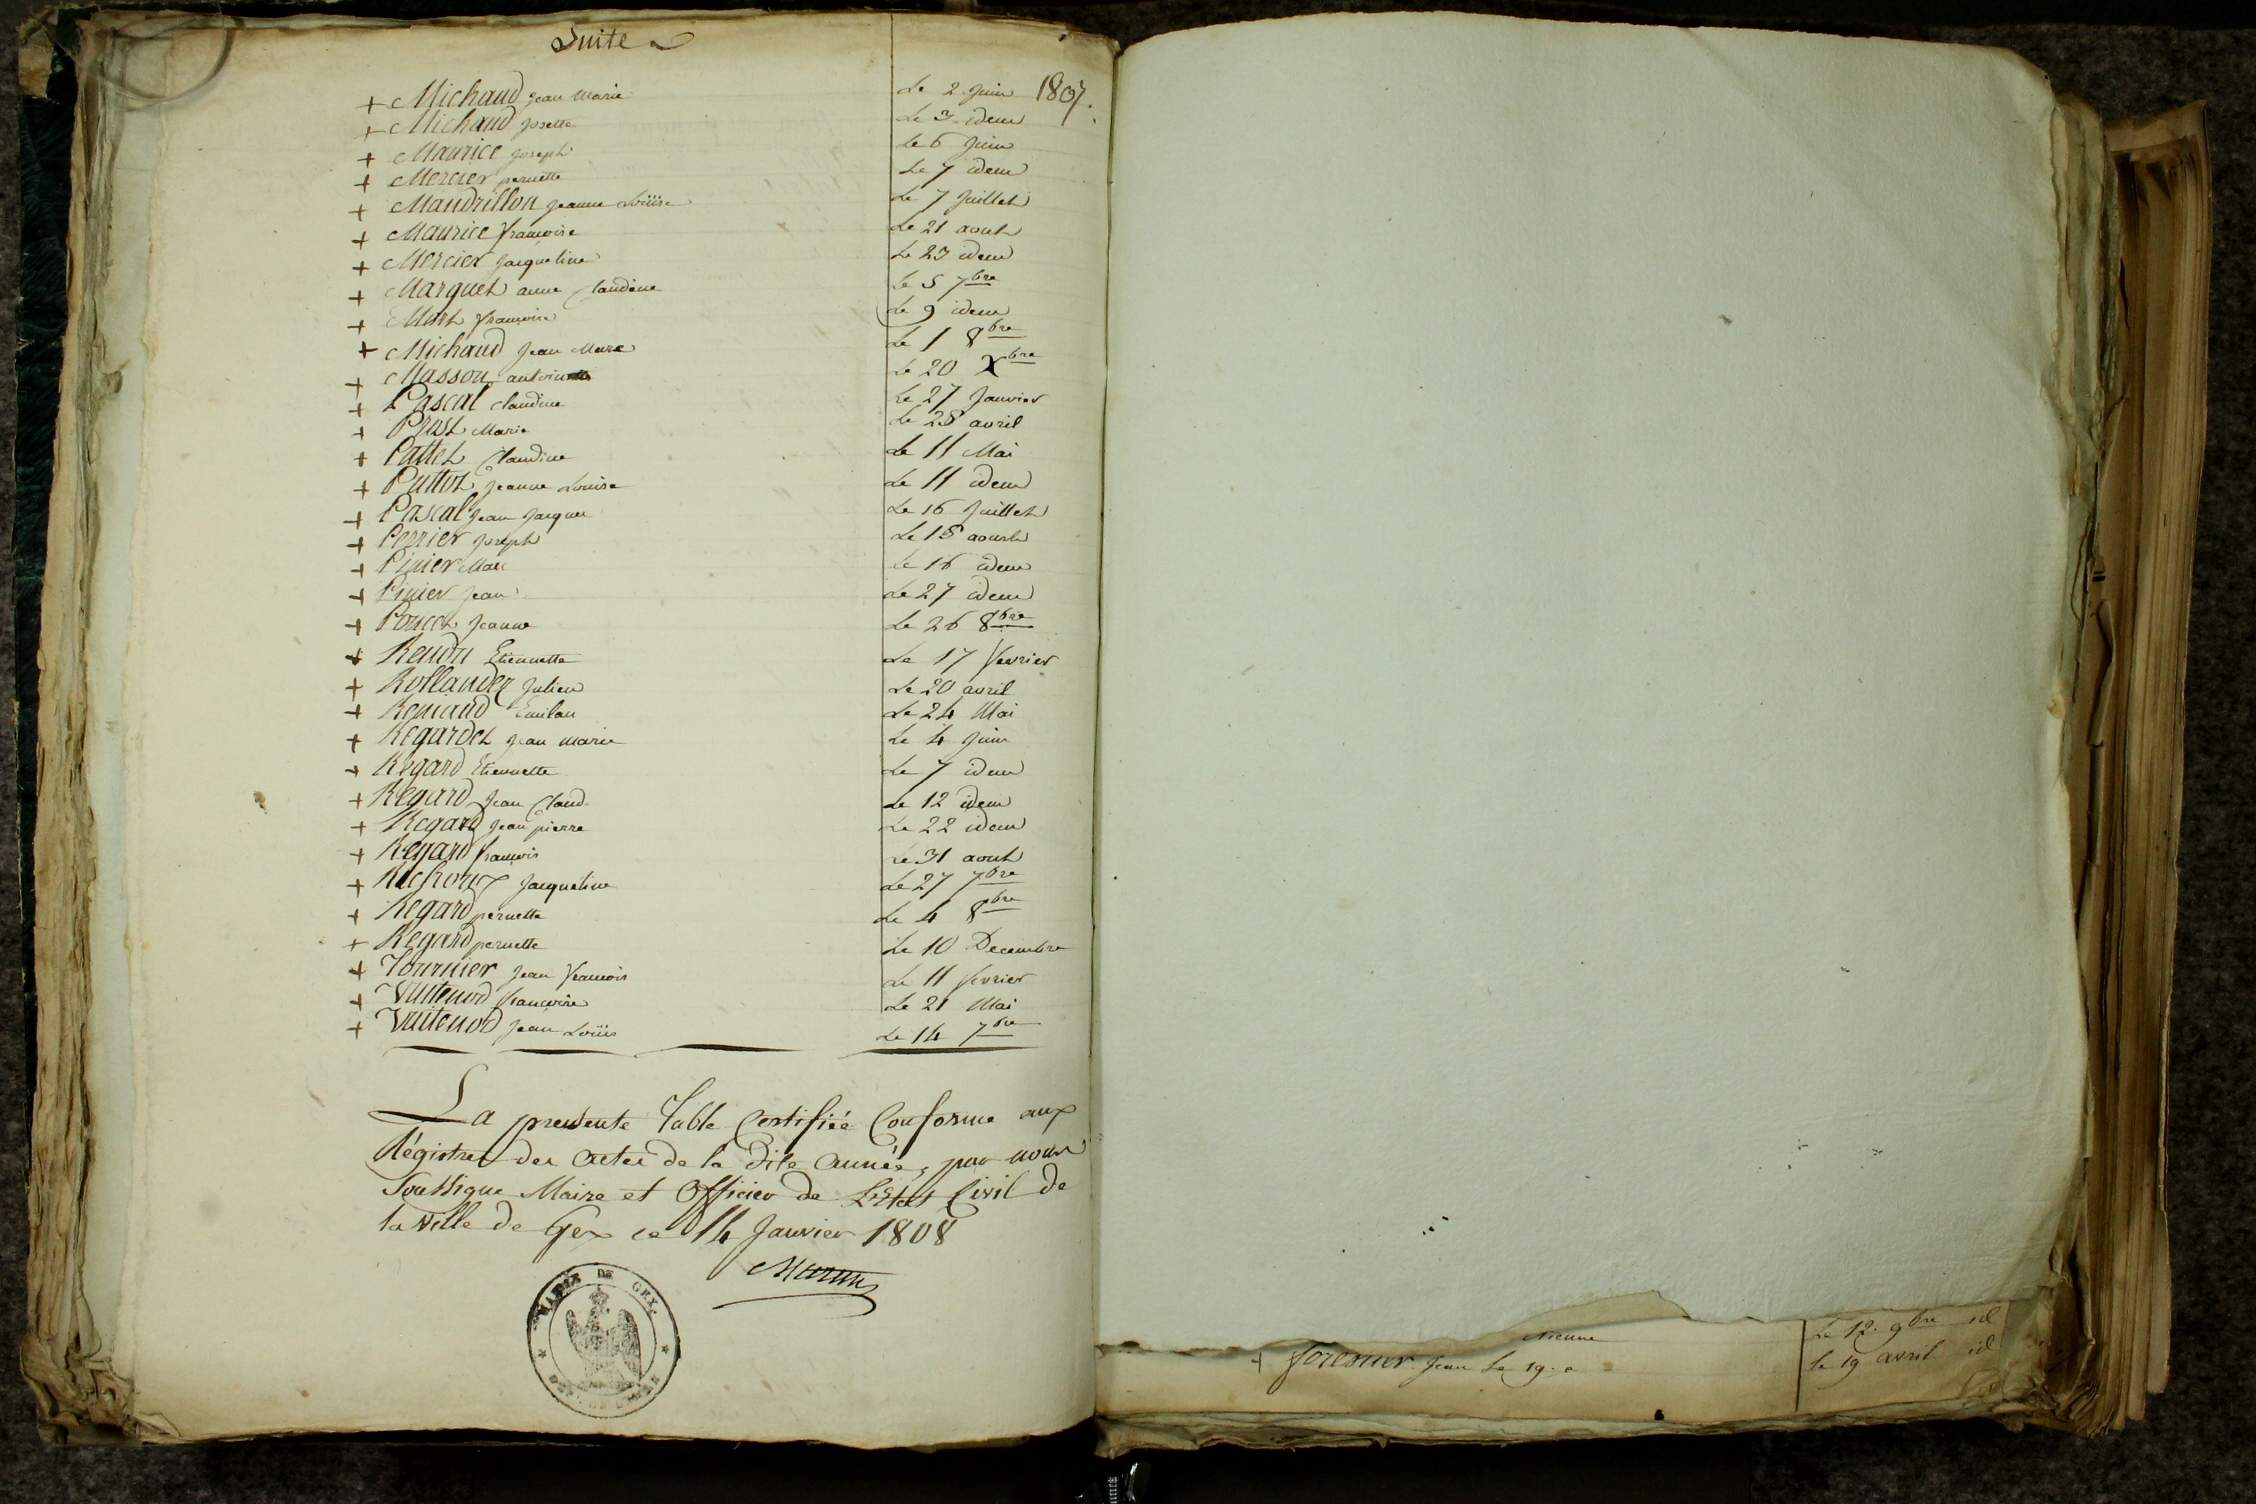 Suite
+ Michaud jean Marie Le 2 Juin 1807.
+ Michaud Josette Le 3 idem
+ Maurice joseph Le 6 Juin
+ Mercier pernette Le 7 idem
+ Mandrillon jeanne Loüise Le 7 Juillet
+ Maurice françoise Le 21 aout
+ Mercier Jacqueline Le 23 idem
+ Marquet anne Claudine Le 5 7bre
+ françoise Le 9 idem
+ Michaud Jean Marc Le 1 8bre
+ Masson antoinette Le 20 Xbre
+ Pascal Claudine Le 27 Janvier
+ Prost Marie Le 28 avril
+ Pattet Claudine Le 11 Mai
+ Pattet Jeanne Louise Le 11 idem
+ Pascal Jean Jacques Le 16 Juillet
+ Perrier Joseph Le 15 aoust
+ Pinier Marc Le 16 idem
+ Pinier Jean Le 27 idem
+ Poncet Jeanne Le 26 8bre
+ Rendu Etiennette Le 17 fevrier
+ Rollandez Julien Le 20 avril
+ Reniaud Emilan Le 24 Mai
+ Regardet jean marie Le 4 Juin
+ Regard Etiennette Le 7 idem
+ Regard Jean Claud Le 12 idem
+ Regard Jean pierre Le 22 idem
+ Regard françois Le 31 aout
+ Jacqueline Le 27 7bre
+ Regard pernette Le 4 8bre
+ Regard pernette Le 10 Decembre
+ Tournier Jean francois Le 11 fevrier
+ Vuitenod francoise Le 21 Mai
+ Vuitenod Jean Loüis Le 14 7bre
La presente Table Certifiée Conforme aux
Régistres des actes de la dite année, par nous
Soussigne Maire et Officier de L'Etat Civil de
la ville de Gex ce 14 Janvier 1808
MAIRIE DE GEX
Le 12. 9bre id
+ forestier Jean Le 19. a le 19 avril id